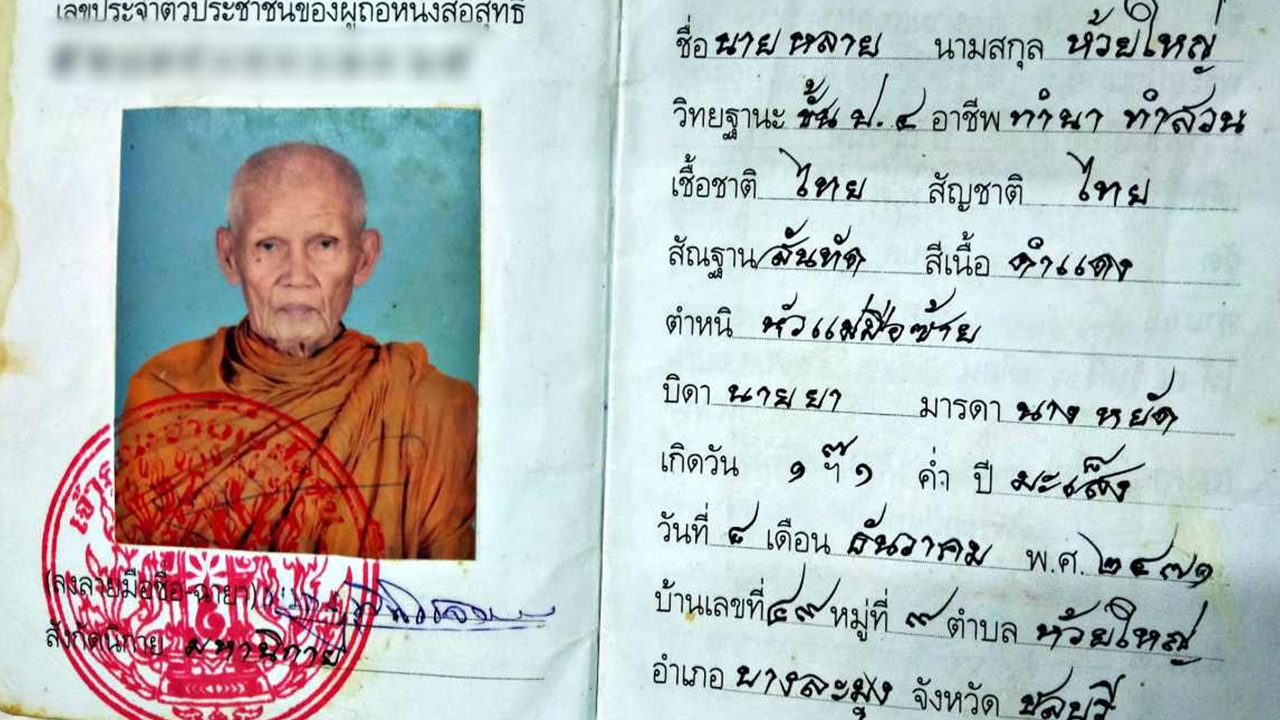 เลขประจำตัวประชาชนของผู้ถือหนังสือสุทธิ
(ลงลายมือชื่อ-ฉายา)
สังกัดนิกาย มหานิกาย
ชื่อ นาย หลาย นามสกุล ห้วยใหญ่
วิทยฐานะ ชั้น ป. ๔ อาชีพ ทำนา ทำสวน
เชื้อชาติ ไทย สัญชาติ ไทย
สัณฐาน สันทัด สีเนื้อ ดำแดง
ตำหนิ หัวแม่มือซ้าย
บิดา นาย ยา มารดา นาง หยัด
เกิดวัน ๑ ฯ ๑ ค่ำ ปี มะเส็ง
วันที่ ๔ เดือน ธันวาคม พ.ศ. ๒๔๗๑
บ้านเลขที่ ๔๙ หมู่ที่ ๙ ตำบล ห้วยใหญ่
อำเภอ บางละมุง จังหวัด ชลบุรี